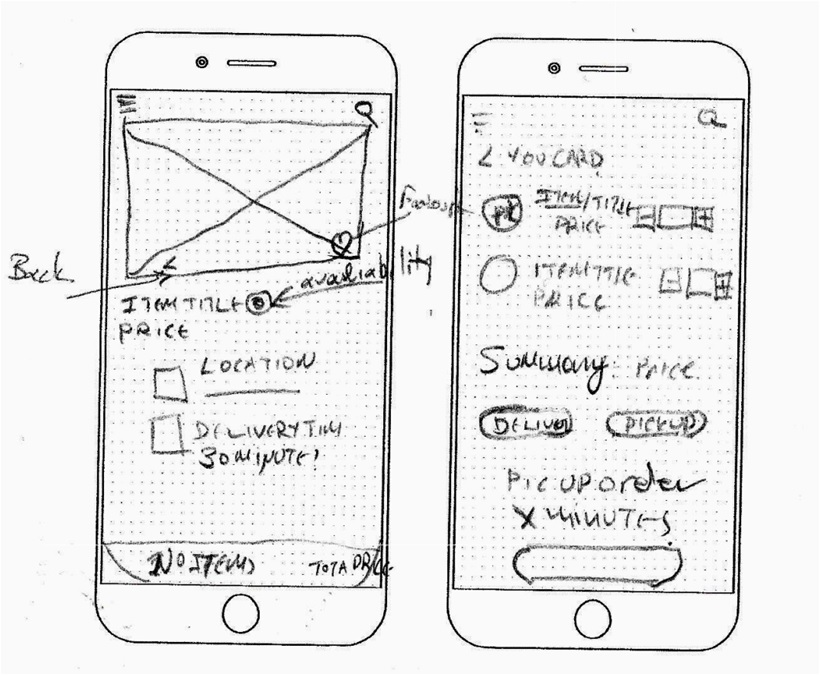 Back
availability
ITEM TITLE
PRICE
LOCATION
DELIVERY TIM
30 MINUTES
NO ITEMS
TOTA PRICE
< YOU CARD
ITEM/TITLE
PRICE
ITEM TITLE
PRICE
Summary PRICE
DELIVER PICKUP
PIC UP order
X MINUTES